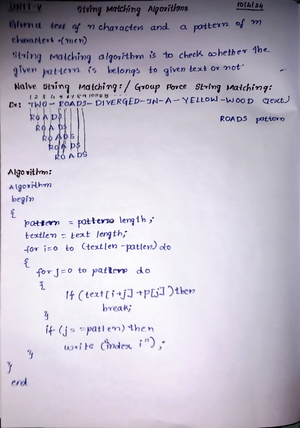 UNIT-V String Matching Algorithms 10/4/24
Given a text of n characters and a pattern of m
characters (m≤n)
String Matching algorithm is to check whether the
given pattern is belongs to given text or not.
Naive String Matching:/ Group Force String Matching:
Ex: TWO-ROADS-DIVERGED-IN-A-YELLOW-WOOD (text)
ROADS ROADS pattern
ROADS
ROADS
ROADS
ROADS
Algorithm:
Algorithm
begin
{
patlen = pattern length;
textlen = text length;
for i=0 to (textlen-patlen) do
{
for j=0 to patlen do
{
if (text[i+j]≠p[j]) then
break;
}
if (j==patlen) then
write ("index i");
}
}
end